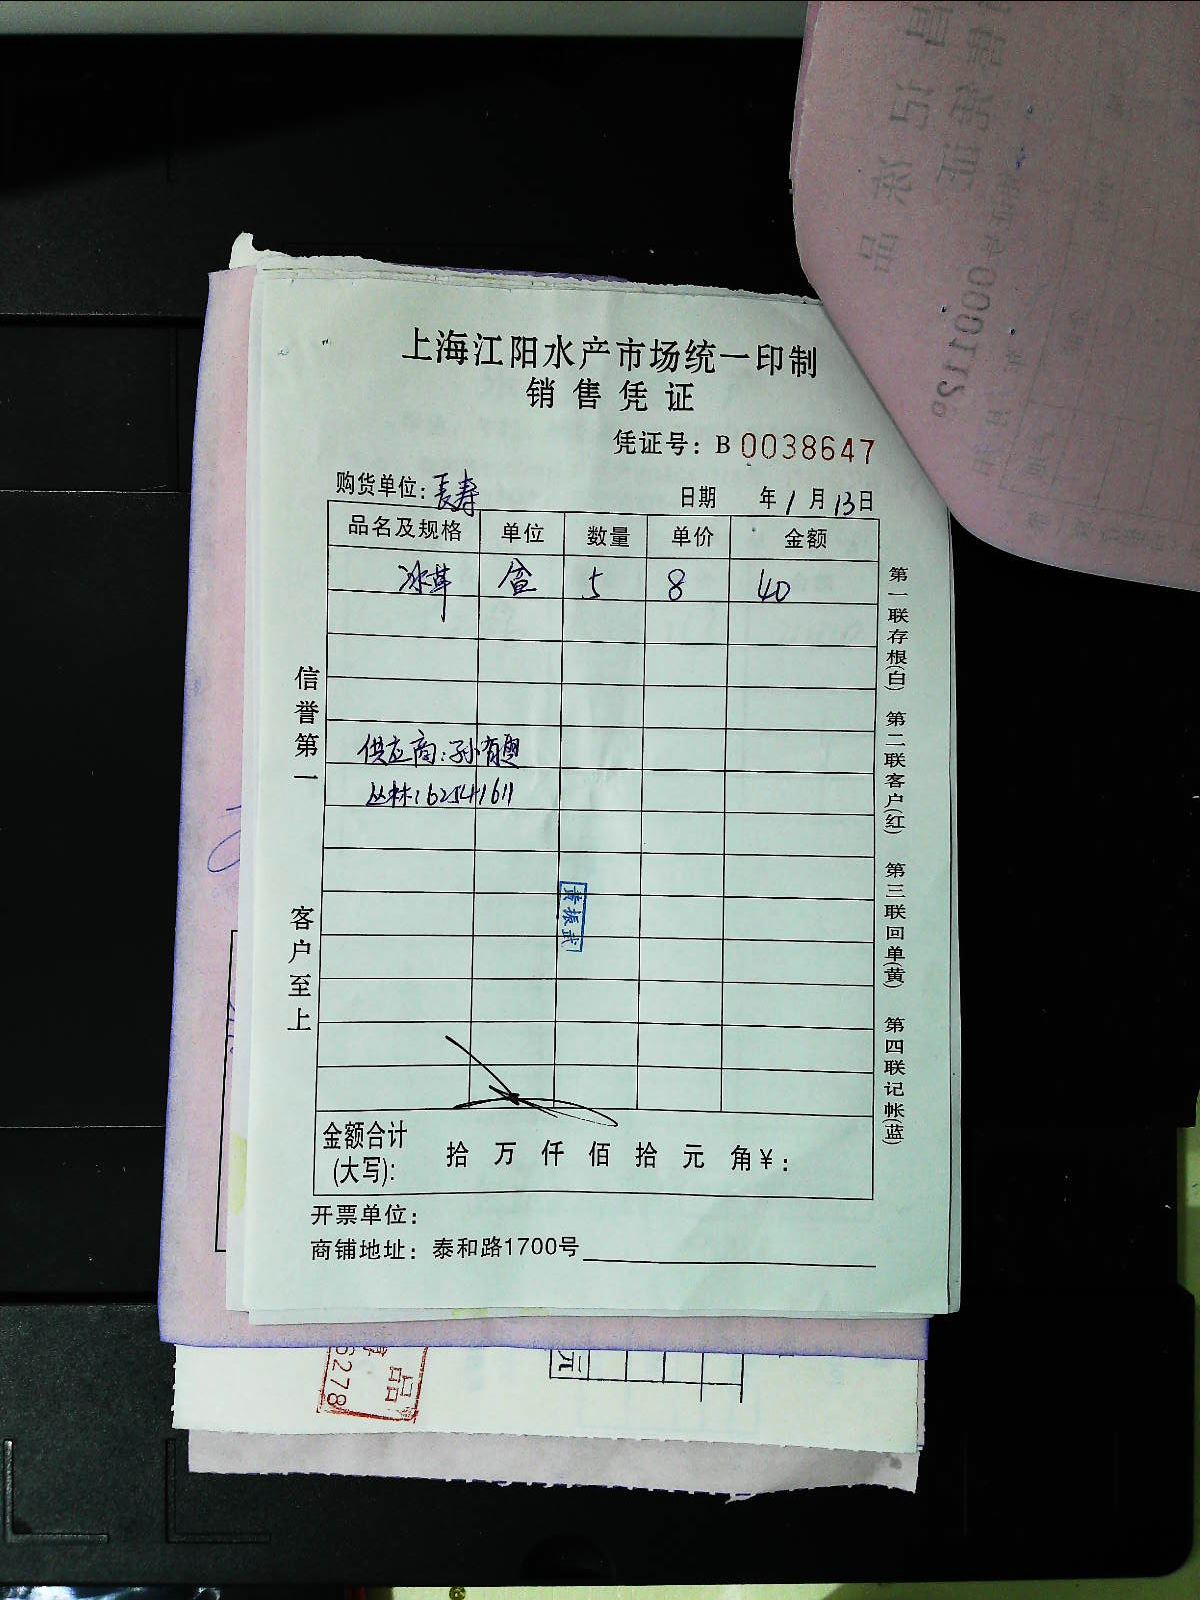 上海江阳水产市场统一印制
销售凭证
凭证号：B 0038647
购货单位：長寿
日期 年1月13日
品名及规格 单位 数量 单价 金额
冰草 盒 5 8 40
供应商：孙有奥
丛林：62541611
黄振武
金额合计
(大写)： 拾 万 仟 佰 拾 元 角￥：
开票单位：
商铺地址：泰和路1700号
信誉第一
客户至上
第一联存根(白) 第二联客户(红) 第三联回单(黄) 第四联记帐(蓝)
元
品
6278